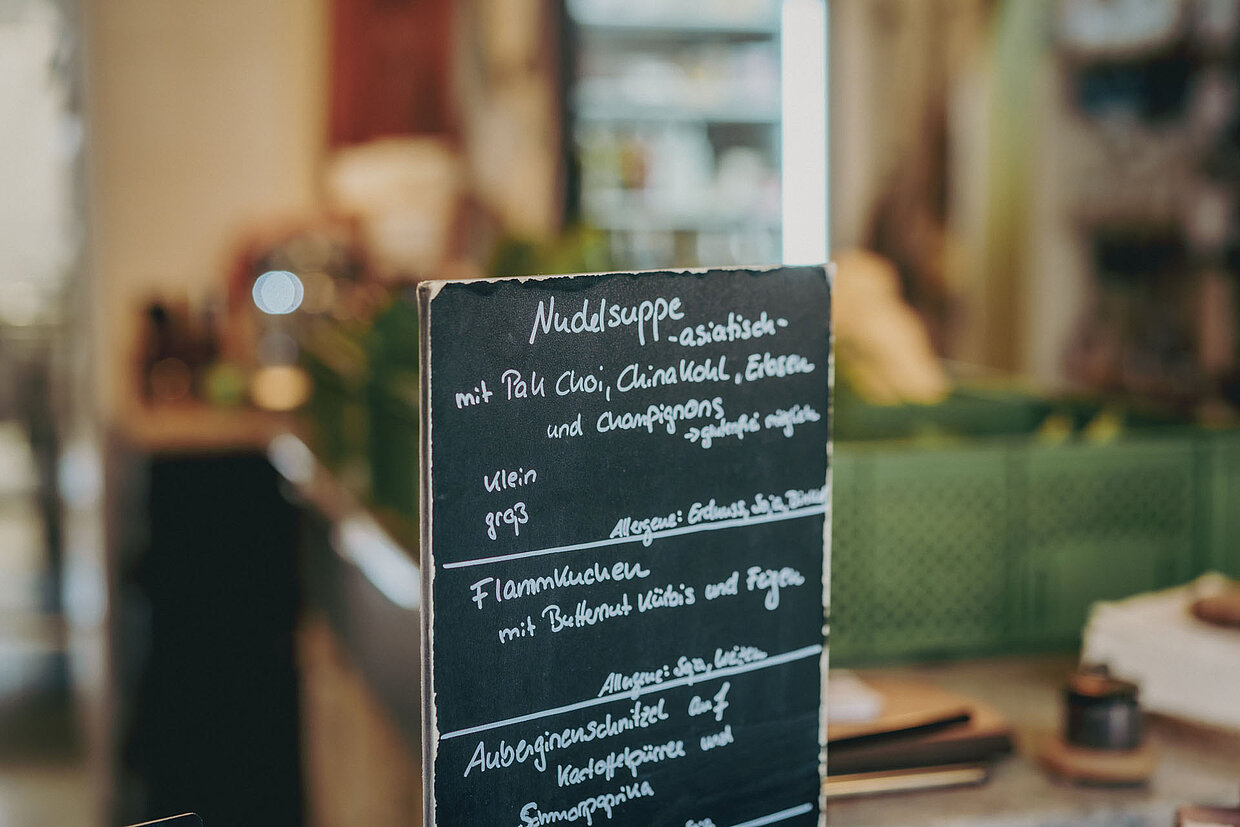 Nudelsuppe
-asiatisch-
mit Pak Choi, Chinakohl, Erbsen
und Champignons
→ glutenfrei möglich
Klein
groß
Allergene: Erdnuss, Soja, Dinkel
Flammkuchen
mit Butternut Kürbis und Feigen
Allergene: Soja, Weizen
Auberginenschnitzel auf
Kartoffelpürree und
Schmorpaprika
Soja